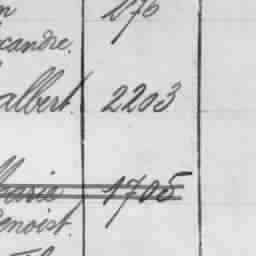 276
xandre.
albert. 2203
Marie 1705
Benoist.